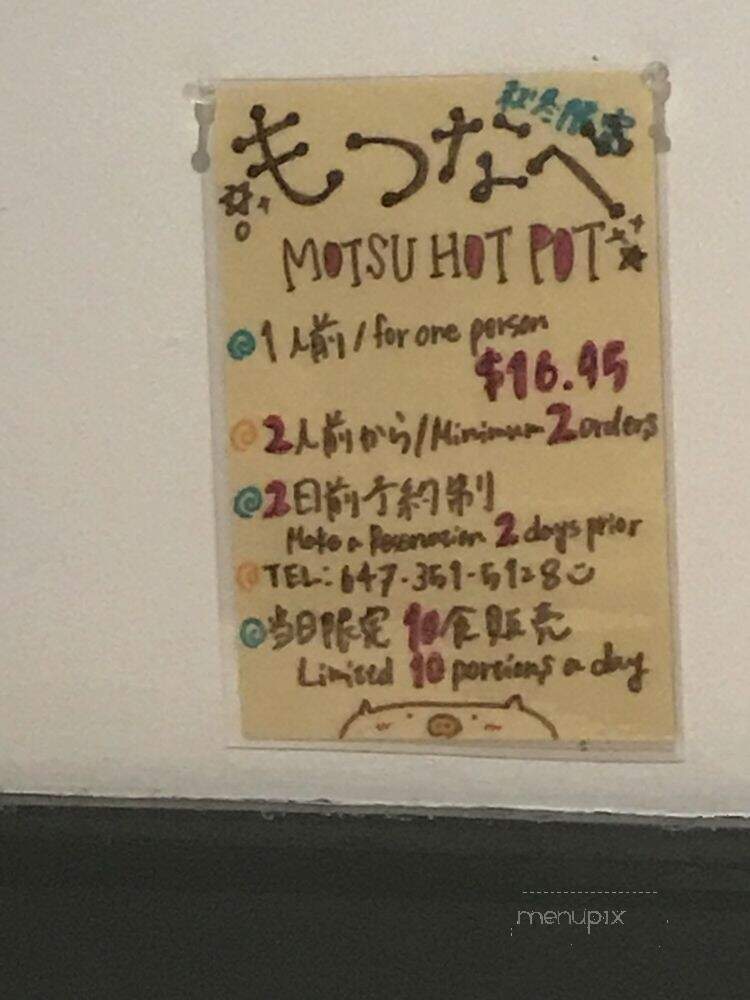 秋冬限定
もつなべ
MOTSU HOT POT
1人前/for one person
$16.95
2人前から/Minimum 2 orders
2日前予約制
Make a Reservation 2 days prior
TEL: 647-351-5128
当日限定 10食販売
Limited 10 portions a day
menupix